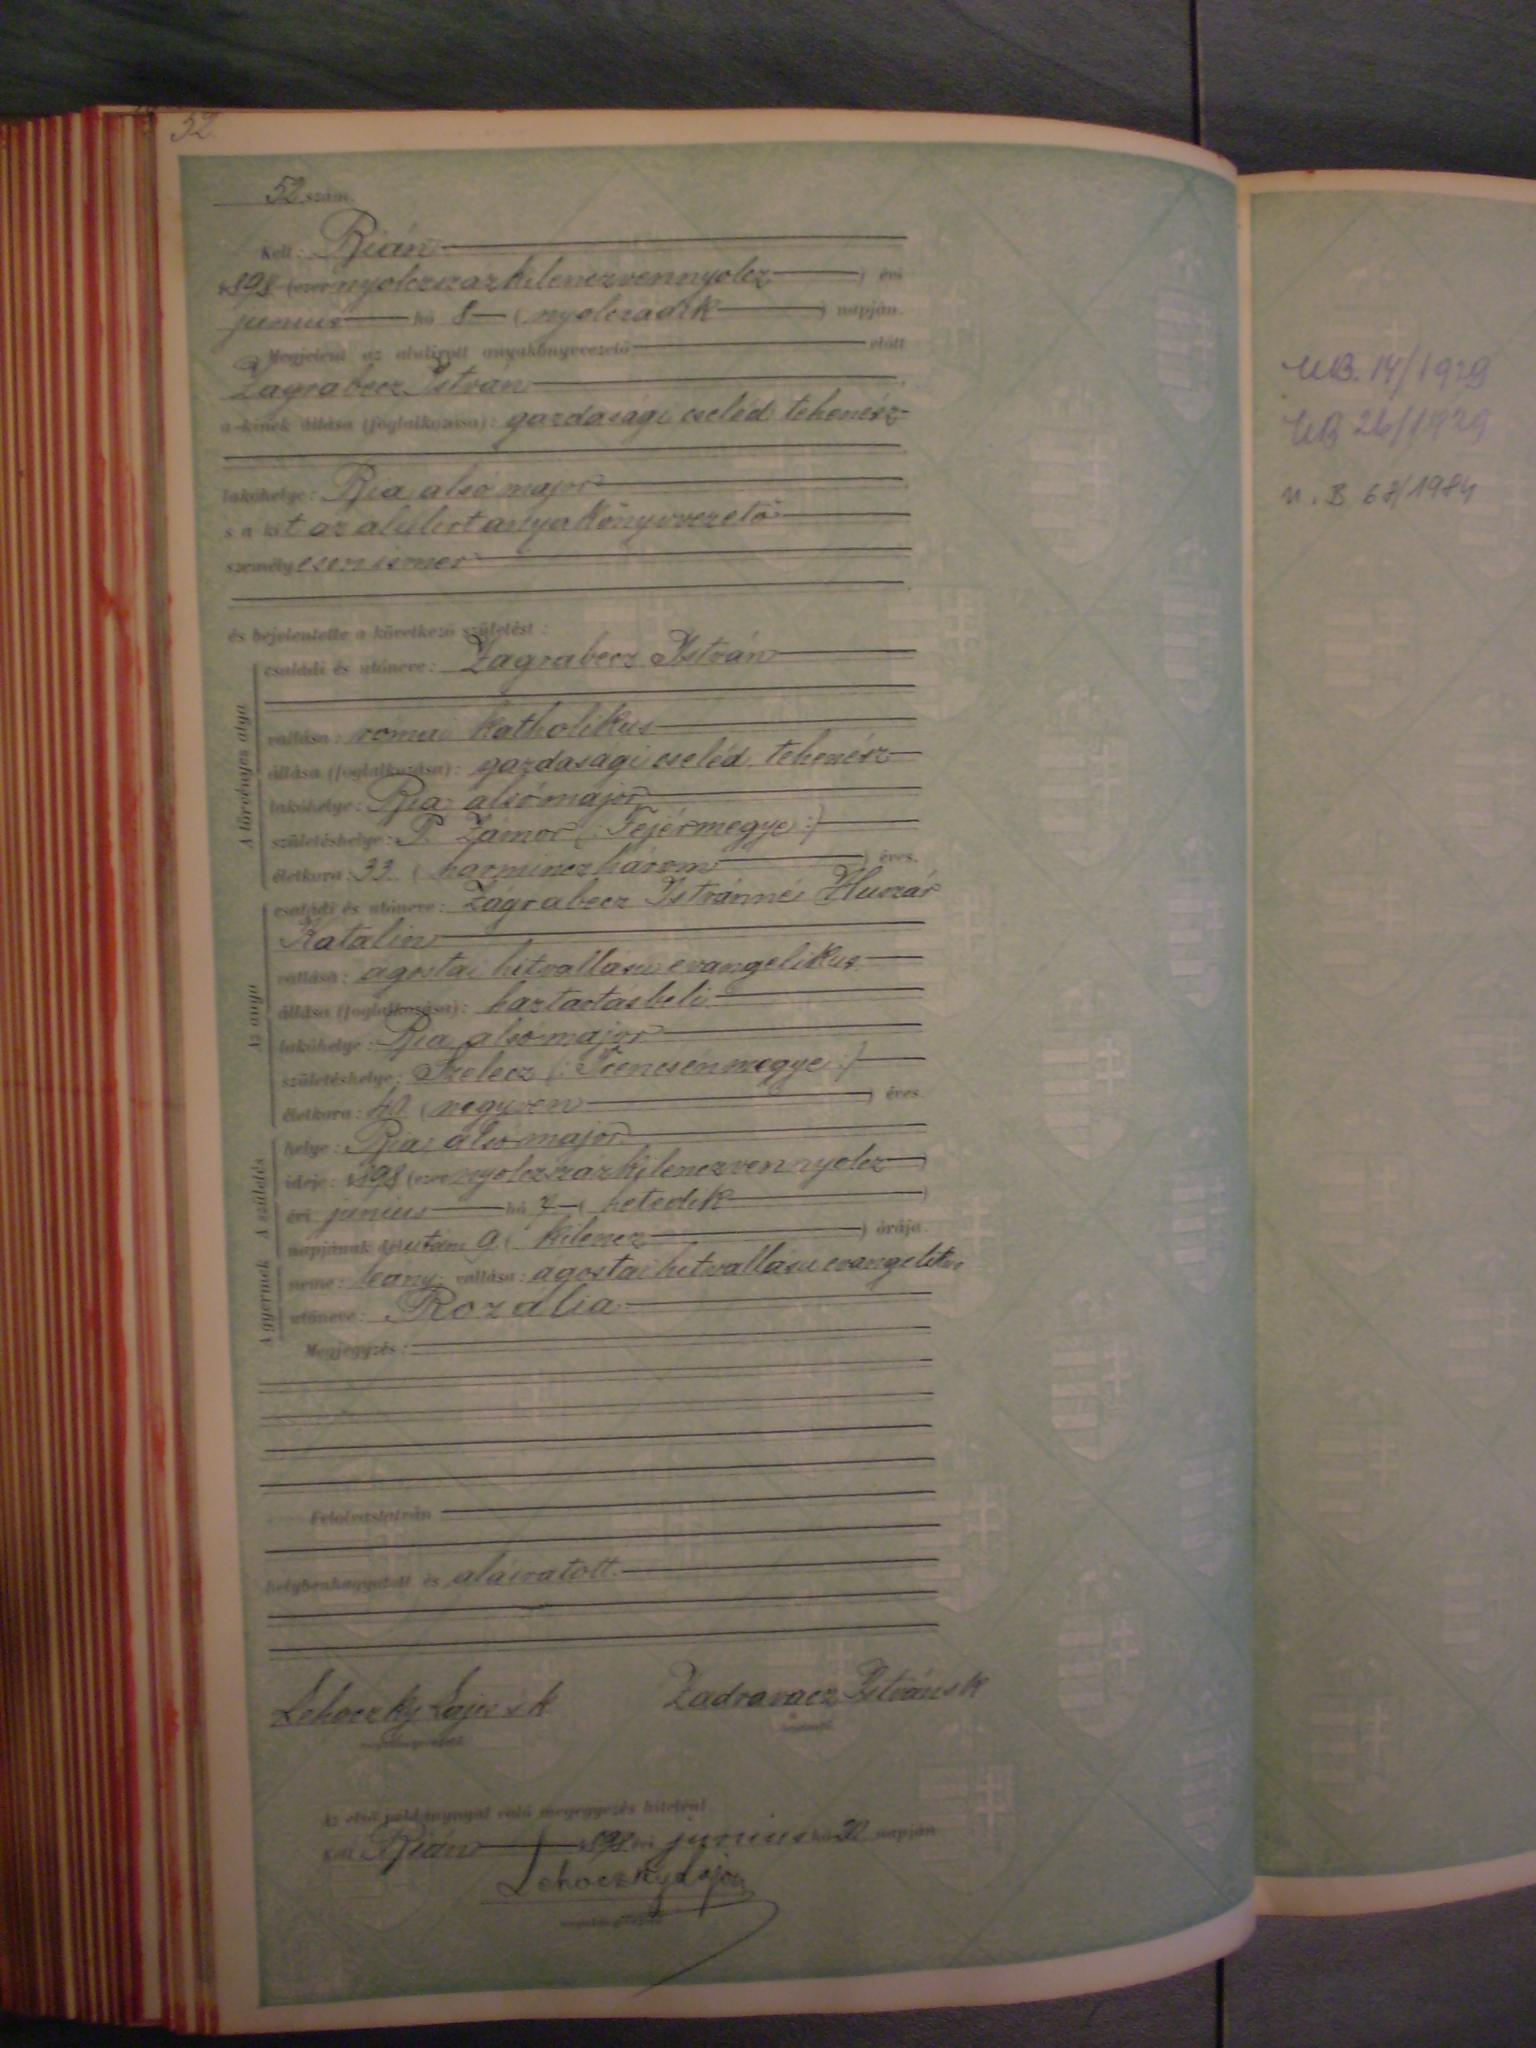 52
52 szám.
Kelt: Bián
1898 (ezernyolczszazkilenczvennyolcz) évi
junius hó 8 (nyolczadik) napján.
Megjelent az alulirott anyakönyvvezető előtt
Zagrabecz István
a kinek állása (foglalkozása): gazdasági cseléd tehenész
lakóhelye: Bia alsó major
s a kit az alulirt anyakönyvvezető
személyesen ismer
és bejelentette a következő születést:
A törvényes atya
családi és utóneve: Zagrabecz István
vallása: romai katholikus
állása (foglalkozása): gazdasági cseléd tehenész
lakóhelye: Bia alsómajor
születéshelye: P. Zámor (: Fejérmegye :)
életkora: 33 (harminczhárom) éves.
Az anya
családi és utóneve: Zágrabecz Istvánné Huszár
Katalin
vallása: ágostai hitvallásu evangelikus
állása (foglalkozása): háztartásbeli
lakóhelye: Bia alsómajor
születéshelye: (: Trencsénmegye :)
életkora: 40 (negyven) éves.
A születés
helye: Bia alsómajor
ideje: 1898 (ezernyolczszázkilenczvennyolcz)
évi junius hó 7 (hetedik)
napjának délután 9 (kilencz) órája.
A gyermek
neme: leány; vallása: ágostai hitvallásu evangelikus
utóneve: Rozália
Megjegyzés:
Felolvastatván
helybenhagyatott és aláiratott.
Lehoczky Lajos sk
Zadravacz István sk
Az első példánynyal való megegyezés hiteléül
Kelt Bián 1898 évi junius hó 30 napján
Lehoczky Lajos
UB. 14/1929
UB 26/1929
U. B 68/1984